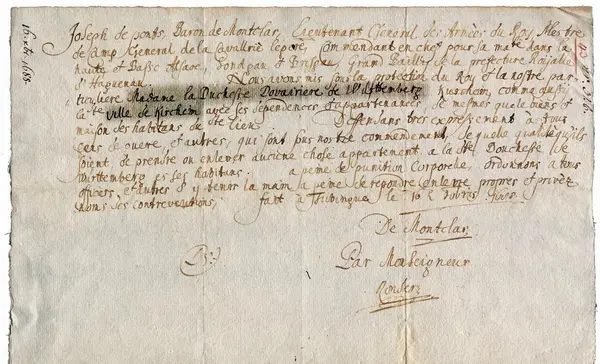 Joseph de ponts, Baron de Montclar, Lieutenant General des Armées du Roy, Mestre
de Camp General de la Cavallrie legere, Commendant en chef pour sa mate dans la
haute et Basse Alsace, Grand Bailly de la prefecture Royalle
d'Haguenau
Nous avons mis sous la protection du Roy et la nostre par
ticuliere Madame la Duchesse Dovairiere de Wirttemberg Kirscheim, comme aussi
la te ville de Kircheim avec ses dependences et appartenances, de mesmes que biens et
maison des habitans de cte lieu. Deffendans tres expressement a tous
gens de guere, et autres, qui sont sous nostre commendement, de quelque qualité qu'ils
soient, de prendre ou enlever aucune chose appartenant a la de Douchesse de
Wurttemberg et ses habitans. a peine de punition Corporelle, ordonnons a tous
officers, et autres d'y tenir la main a peine de repondre en leurs propres et privéz
noms des contreventions, fait a Thubingue le 16 Xbres
De Montclar
Par Monseigneur
16 Xbr 1688.